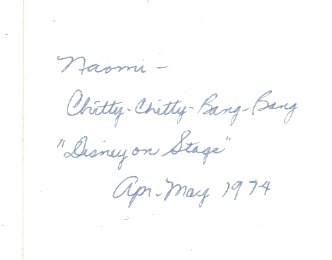 Naomi -
Chitty-Chitty-Bang-Bang
"Disney on Stage"
Apr-May 1974